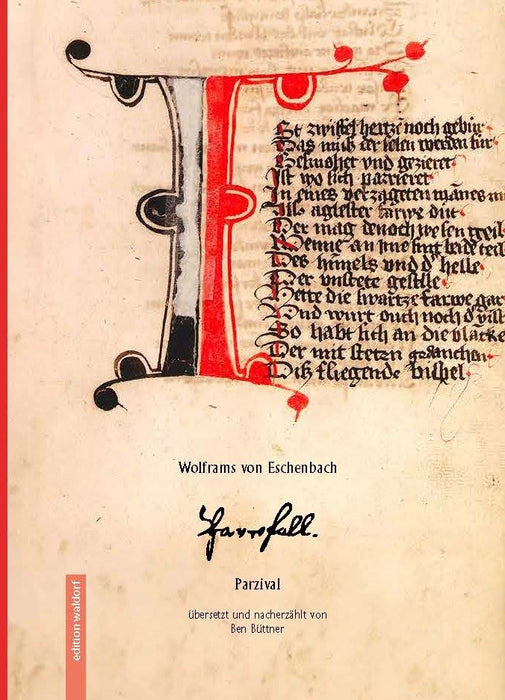 I
St zwiffel hertzē noch gebur
Das muß der selen werden sur
Geswohet vnd gezieret
Ist wo sich parrieret
In eines verzageten mānes m
Als aglester farwe dut
Der mag denoch wesen geil
Wenne an ime sint beide teil
Des himels vnd d' helle
Der vnstete geselle
Hette die swartze farwe gar
Vnd wurt ouch noch d'
So habt sich an die blacke
Der mit stetzn gedancken
Diß fliegende bispel
Wolframs von Eschenbach
Parzival
übersetzt und nacherzählt von
Ben Büttner
edition waldorf